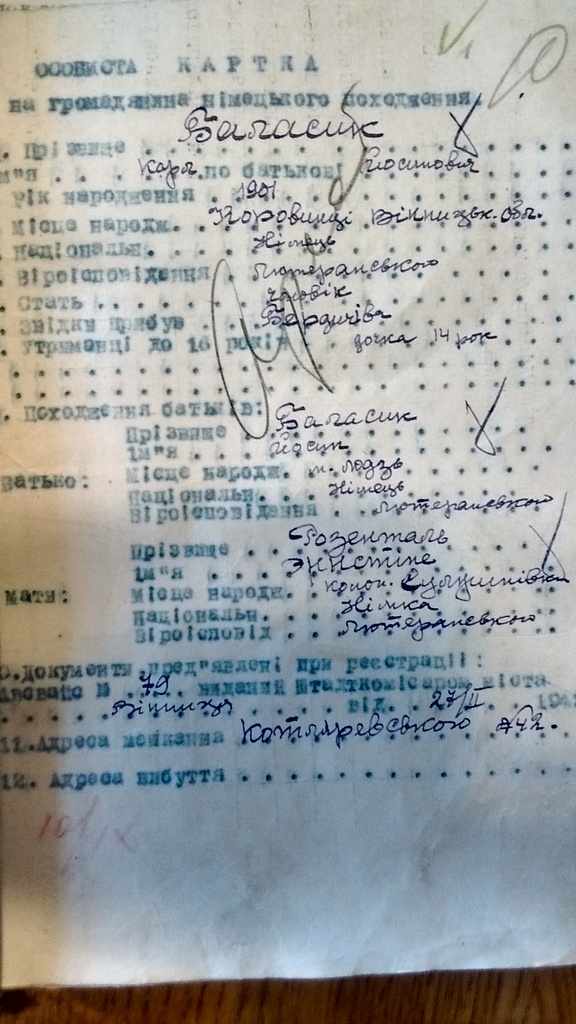 ОСОБИСТА КАРТКА
на громадянина німецького походження.
Прізвище Баласик
м"я Карл по батькові Йосипович
Рік народження 1901
Місце народж. Коровинці Вінницьк. обл.
Національн. Німець
Віроісповідання Лютеранського
Стать чоловік
Звідки прибув Бердичіва
Утриманці до 16 років дочка 14 рок.
Походження батьків:
Прізвище Баласик
Ім"я Йосип
Батько: Місце народж. м. Лодзь
Національн. Німець
Віроісповідання Лютеранського
Прізвище Розенталь
Ім"я
Мати: Місце народж. колон.
Національн. Німка
Віроісповід Лютеранського
Документи пред"явлені при реєстрації:
№ 79 виданий штадткомісаром міста
Вінниця від. 27/II 194
11. Адреса мешкання Котляревською №42.
12. Адреса вибуття
10/IX